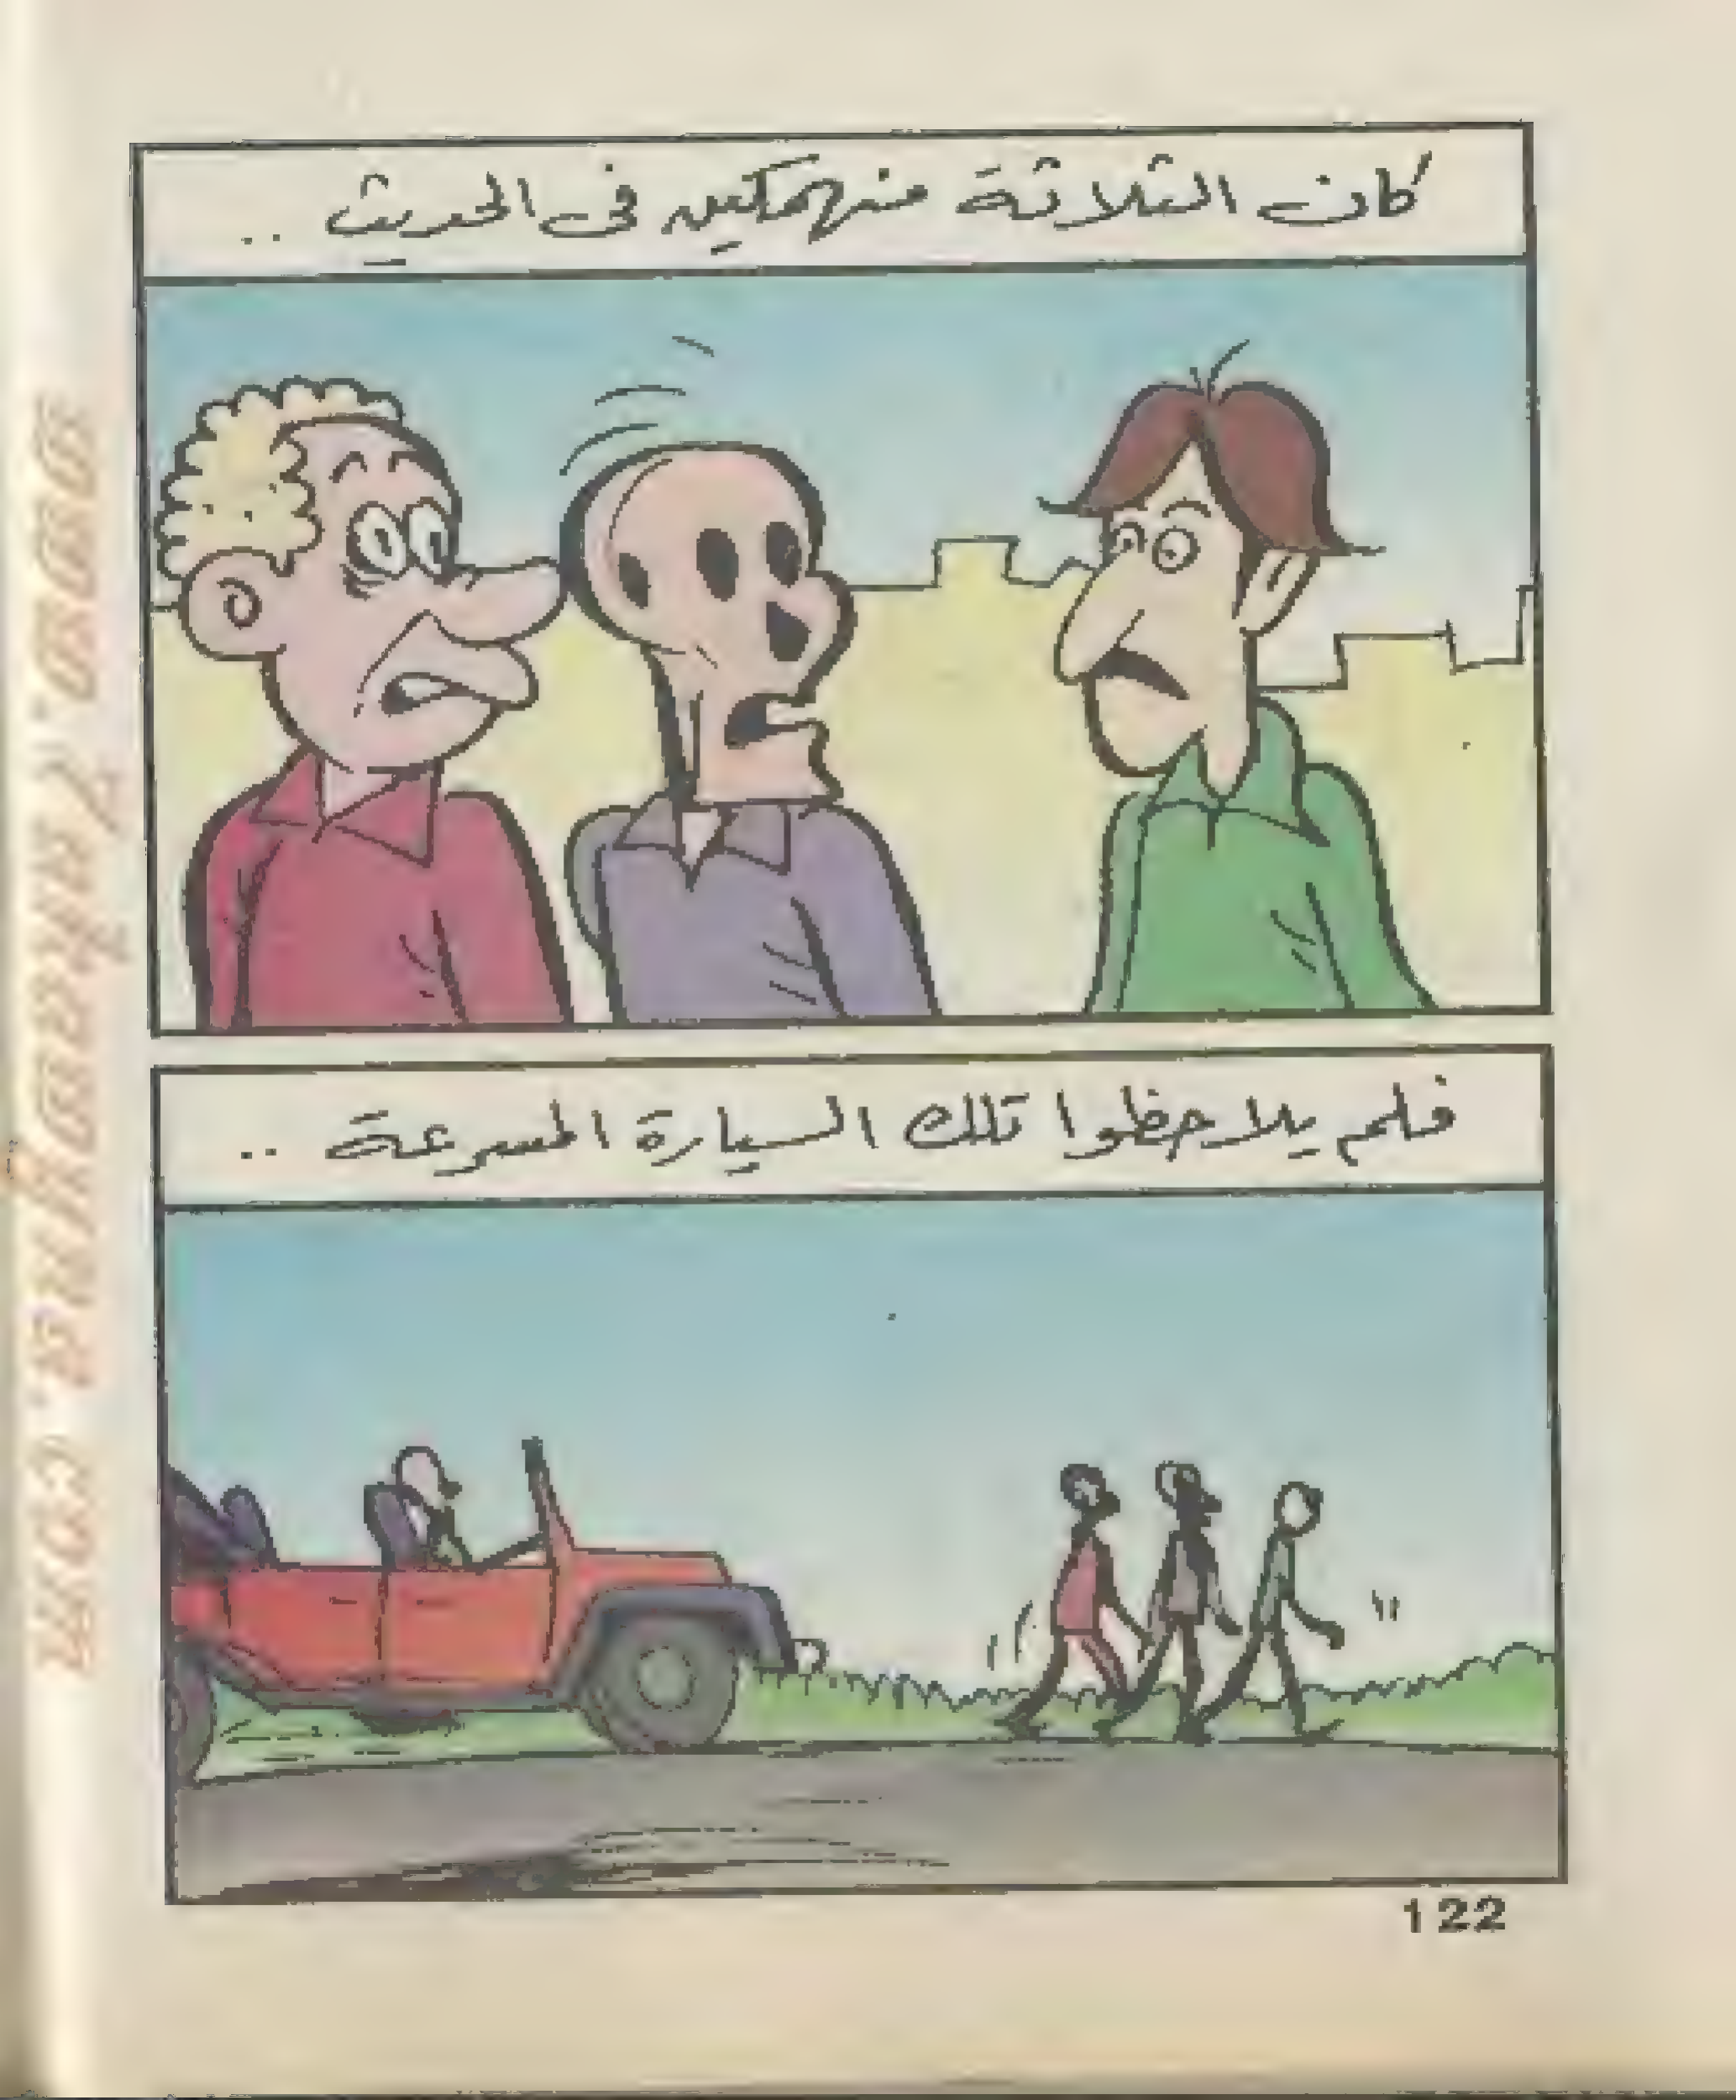 كان الثلاثة منهمكين فى الحديث ..
فلم يلاحظوا تلك السيارة المسرعة ..
122